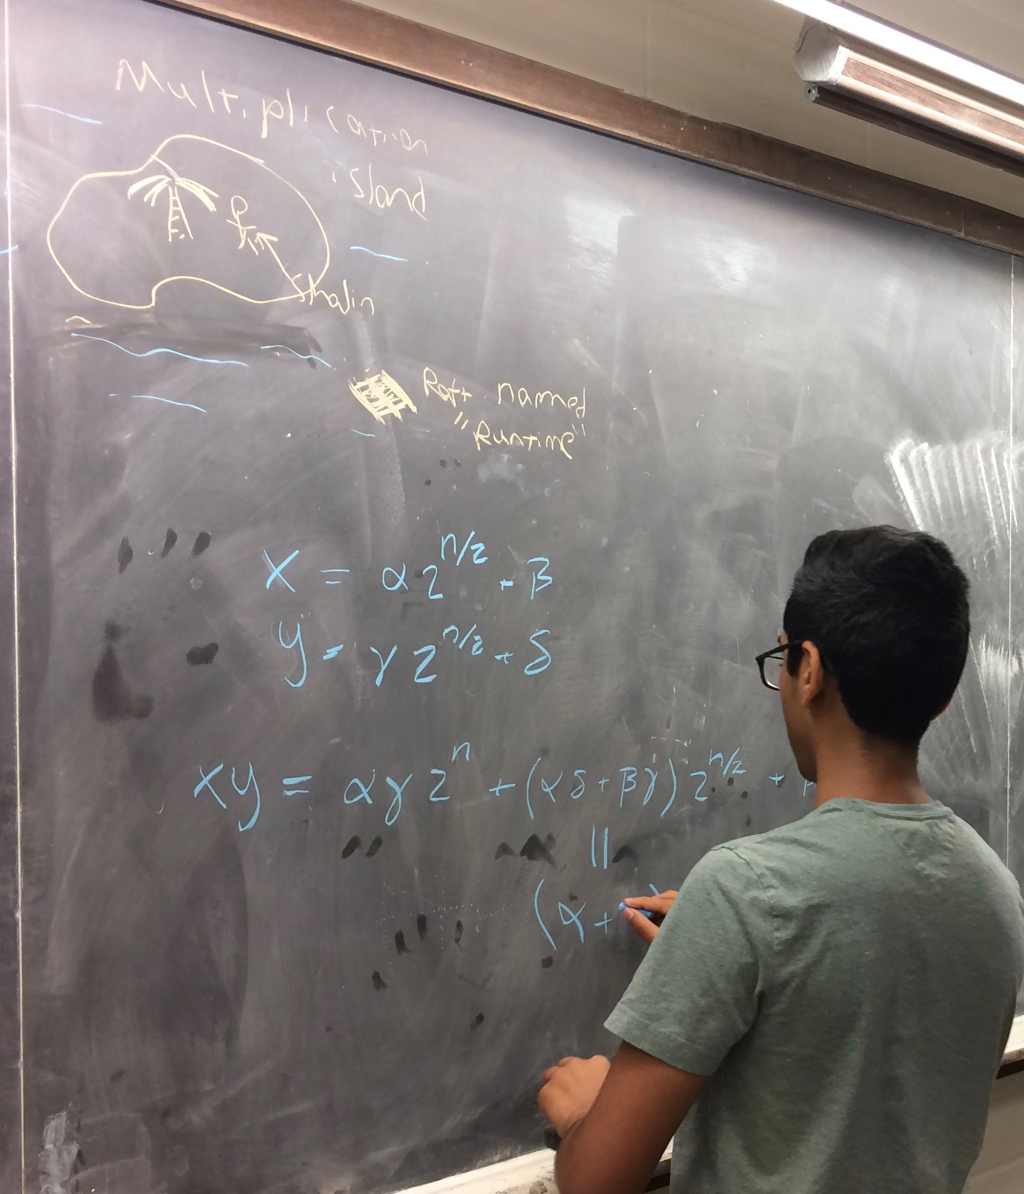 Multiplication
island
Shalin
Raft named
"Runtime"
x = α2^{n/2} + β
y = γ2^{n/2} + δ
xy = αγ2^n + (αδ+βγ)2^{n/2} +
||
(α+